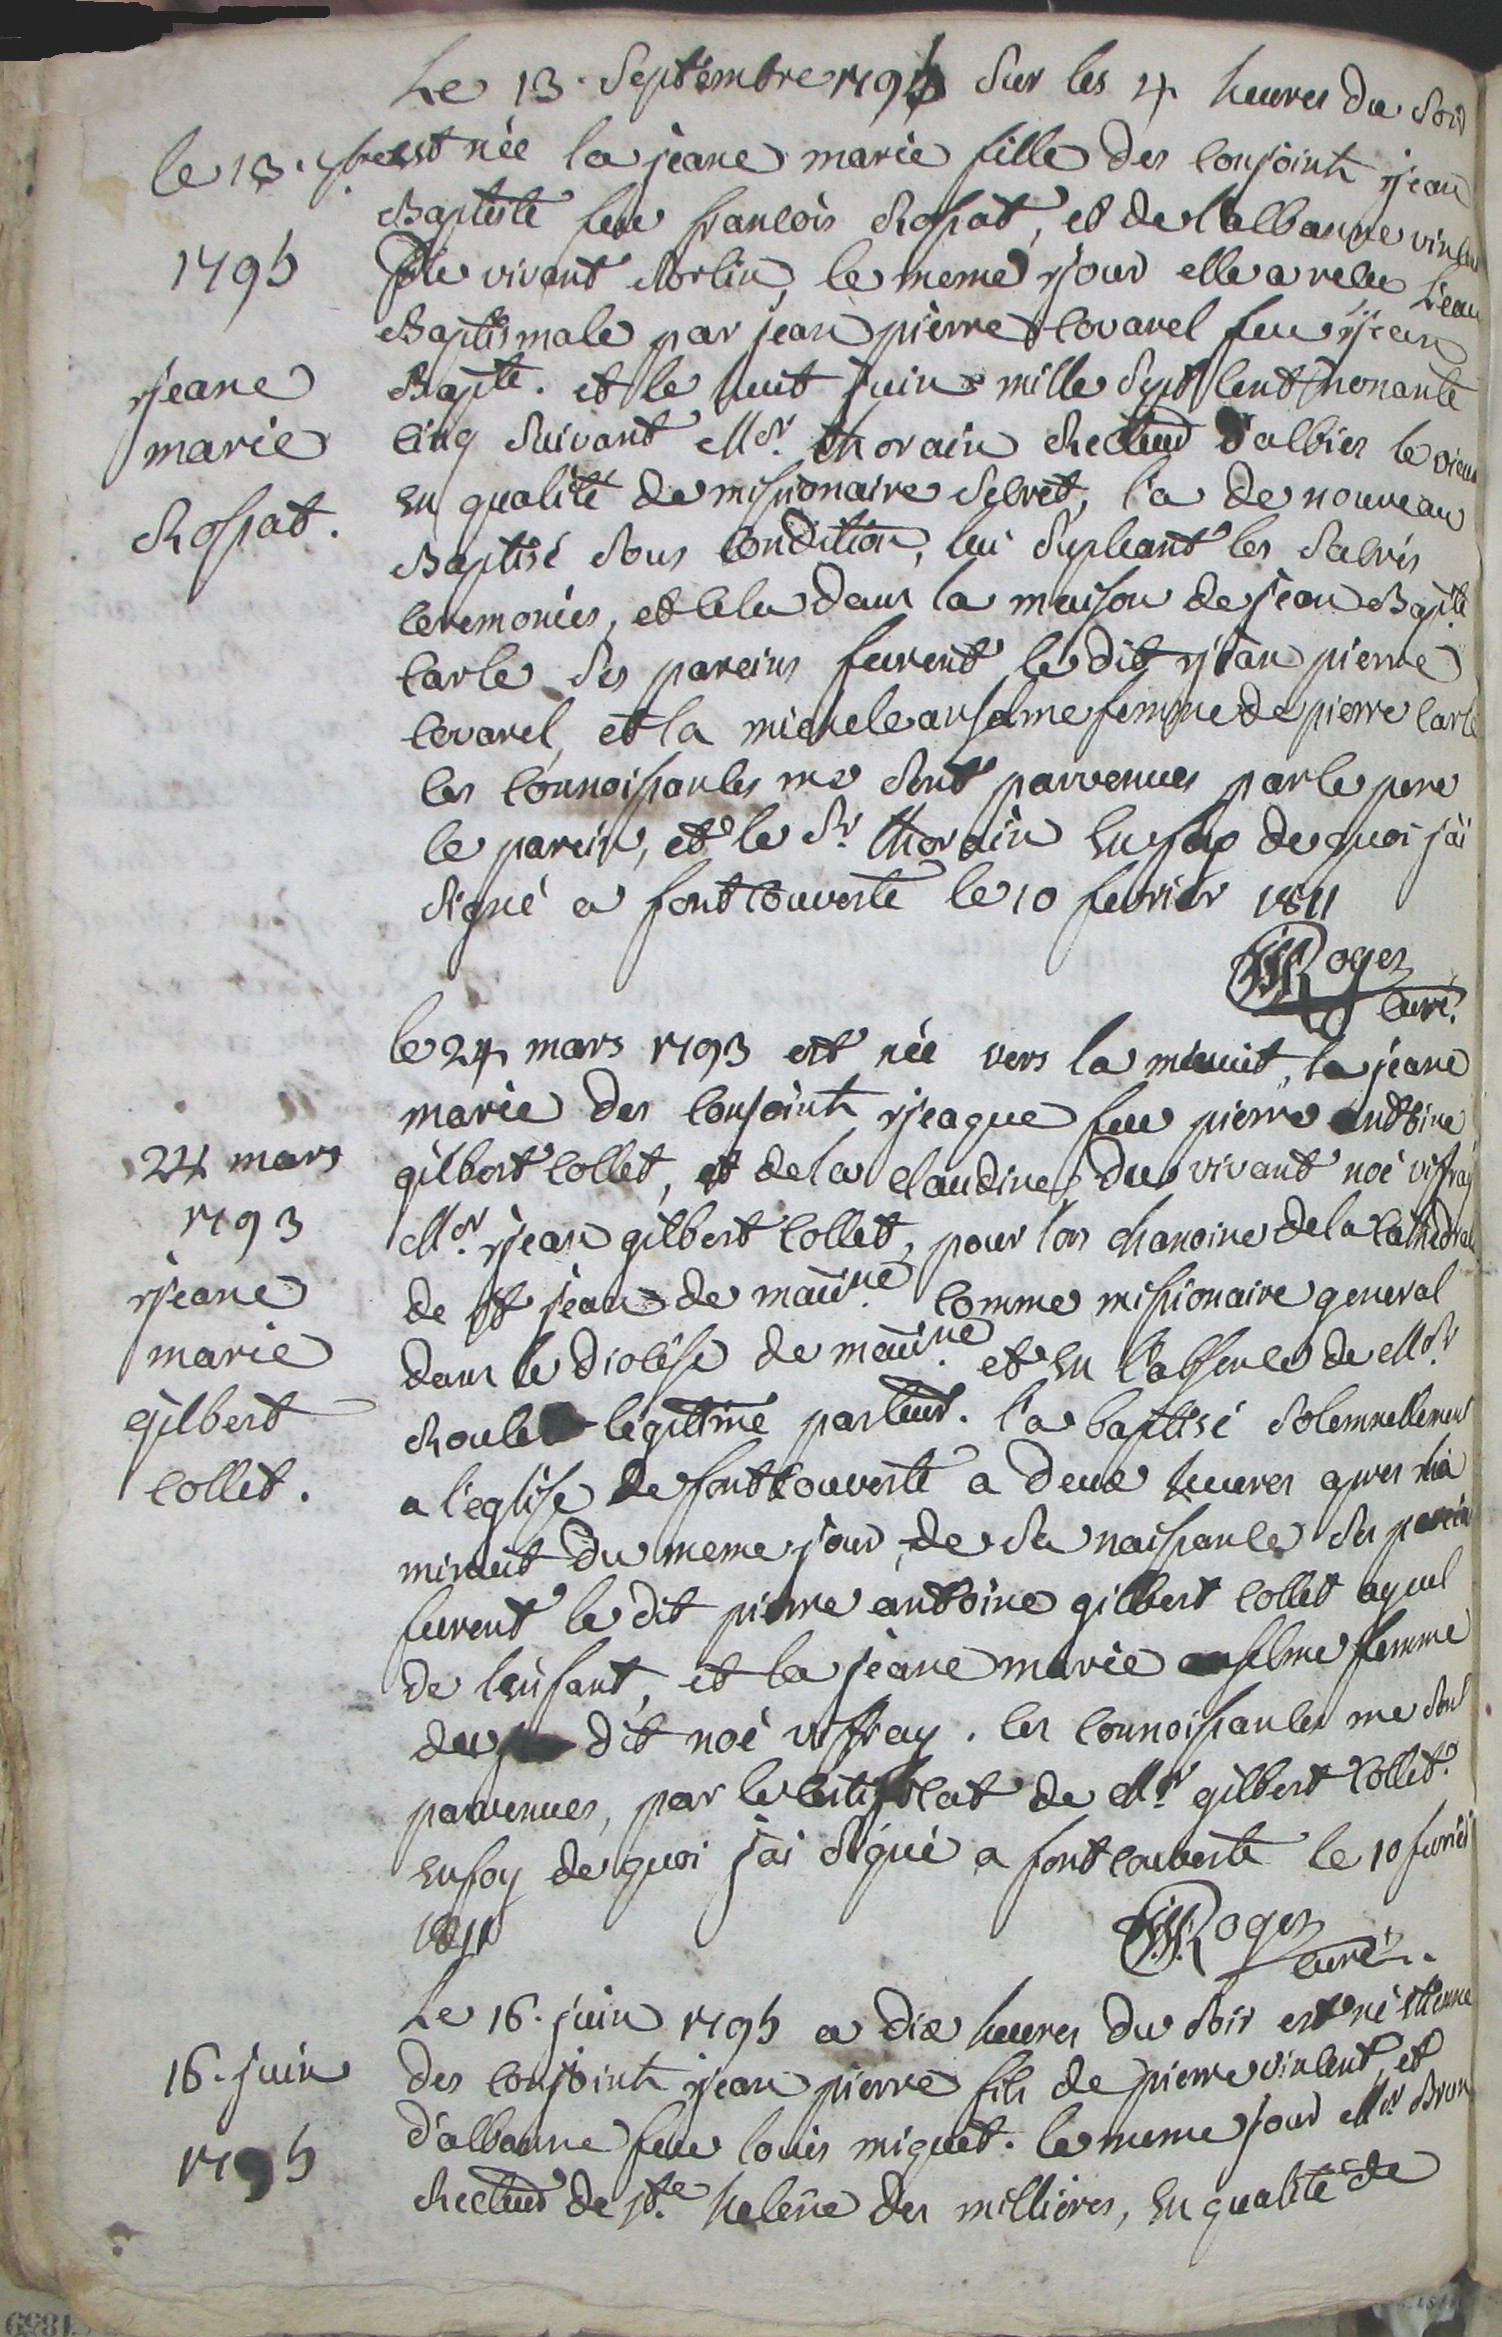 Le 13. Septembre 1795 sur les 4 heures du soir
le 13. 7bre
est née la jeane marie fille des conjoints jean
Baptiste feu francois Rossat, et de l'albanne vincen
1795
du vivant Sorlin, le meme jour elle a recu L'eau
Baptismale par jean pierre covarel feu jean
jeane
Bapte. et le huit juin mille sept cent nonante
marie
cinq suivant Mr. thorain Recteur d'albiez le vieux
Rossat.
en qualité de missionaire secret, l'a de nouveau
Baptisé sous condition, lui supleant les sacrés
ceremonies, et cela dans la maison de jean Bapte
carle ses pareins furent le dit jean pierre
covarel, et la michele anselme femme de pierre carle
les connoissances me sont parvenues par le pere
le parein, et le Sr. thorain En foy de quoi j'ai
signé a fontcouverte le 10 fevrier 1811
Roger
curé.
le 24 mars 1793 est née vers la minuit, la jeane
marie des conjoints jeaque feu pierre antoine
24 mars
gilbert collet, et de la claudine du vivant noé viffray
1793
Mr. jean gilbert collet, pour lors chanoine de la cathedrale
jeane
de st jean de maune. comme missionaire general
marie
dans le diocése de maune. et en l'absence de Mr
gilbert
Roule legitime pasteur. l'a baptisé solemnellement
collet.
a l'eglise de fontcouverte a deux heures apres la
minuit du meme jour de sa naissance ses pareins
furent le dit pierre antoine gilbert collet ayeul
de l'enfant, et la jeane marie anselme femme
du dit noé viffray. les connoissances me sont
parvenues, par le certificat de Mr gilbert collet.
en foy de quoi j'ai signé a fontcouverte le 10 fevrier
1811
Roger
curé.
Le 16. juin 1795 a dix heures du soir est né etienne
16. juin
des conjoints jean pierre fils de pierre vincent, et
d'albanne feu louis miguet. le meme jour Mr Brun
1795
Recteur de ste. heléne des millieres, en qualité de